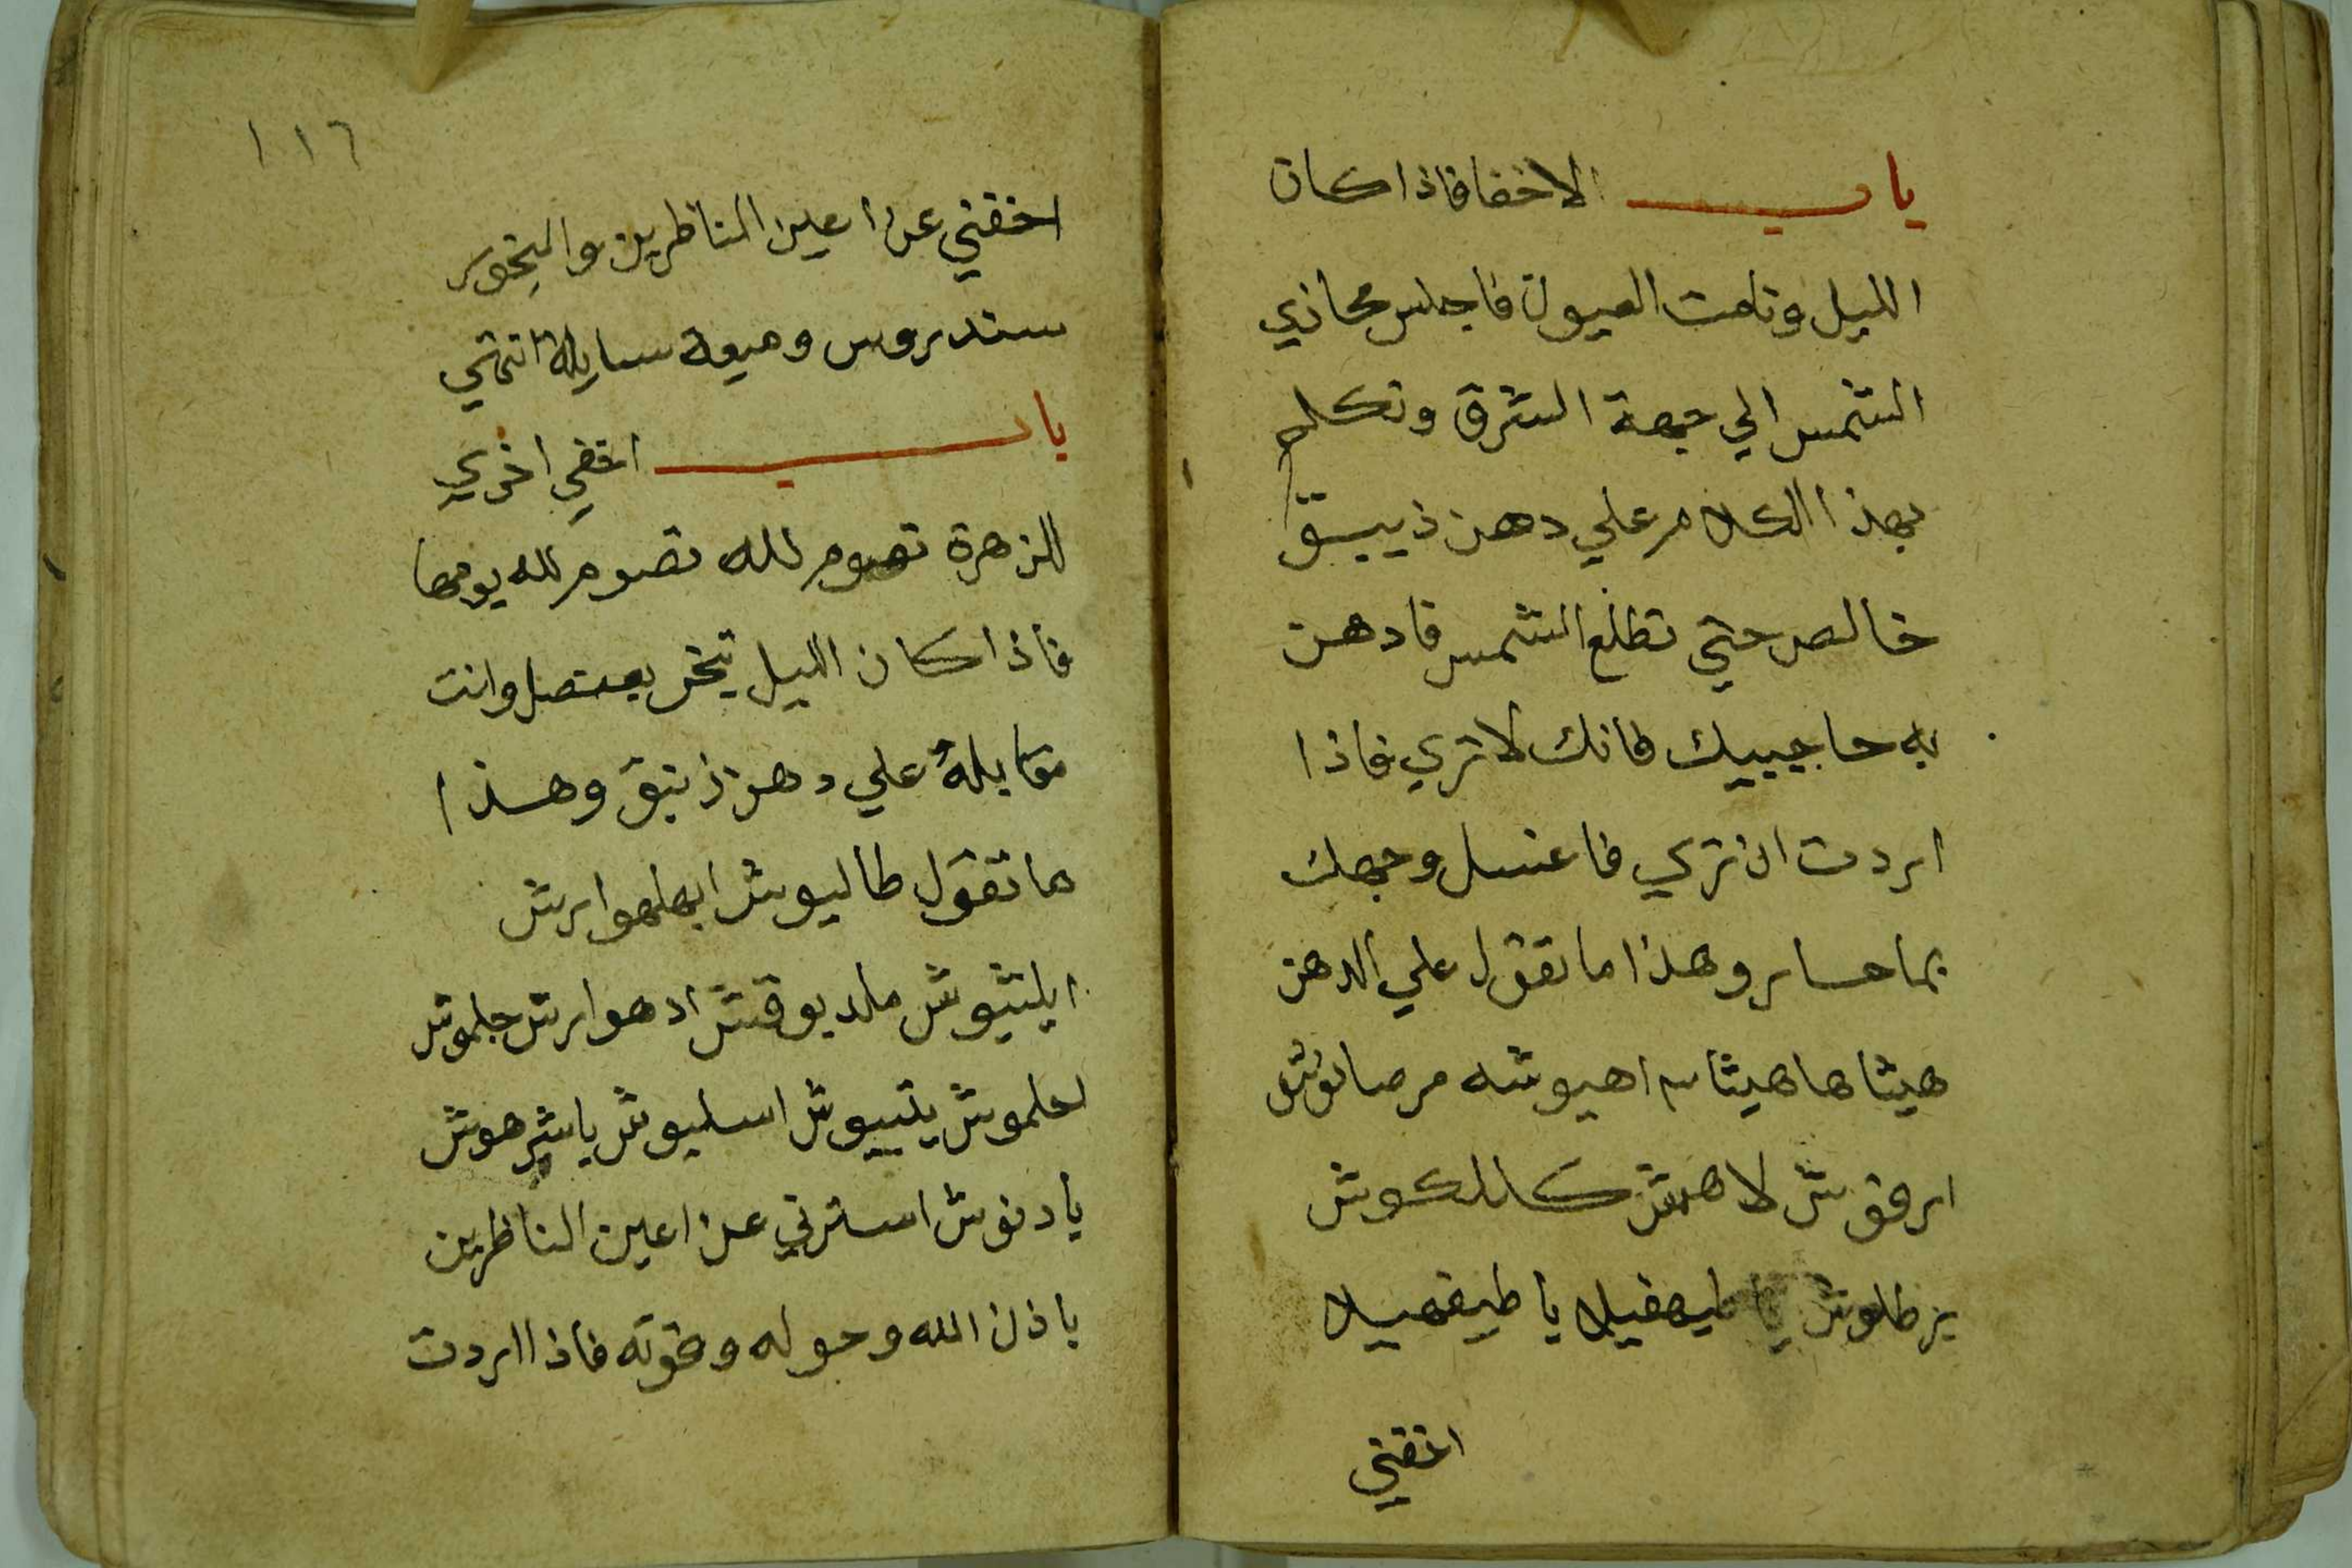 باب الاخفا فاذا كان
الليل ونامت العيون فاجلس محاذي
الشمس الي جهة الشرق وتكلم
بهذا الكلام علي دهن زيبق
خالص حتي تطلع الشمس فادهن
به حاجبيك فانك لا تري فاذا
اردت ان تري فاغسل وجهك
بما حار وهذا ما تقول علي الدهن
هيثا هاهيثا اهيوشه مرصانوش
ارقوش لاهمش كالكوش
يرطلوش يا طيهفيلا يا طيفهيلا
اخفني
١١٦
اخفني عن اعين الناظرين والبخور
سندروس وميعة سايلة انتهي
باب اخفي اخري
للزهرة تصوم لله تصوم لله يومها
فاذا كان الليل تبخر وانت
مقابلة علي دهن زنبق وهذا
ما تقول طاليوش ابهلهوارش
ايلشيوش ملديوقش ادهوارش جلموش
لعلموش يتييوش اسليوش ياشرهوش
يادنوش استرني عن اعين الناظرين
باذن الله وحوله وقوته فاذا اردت